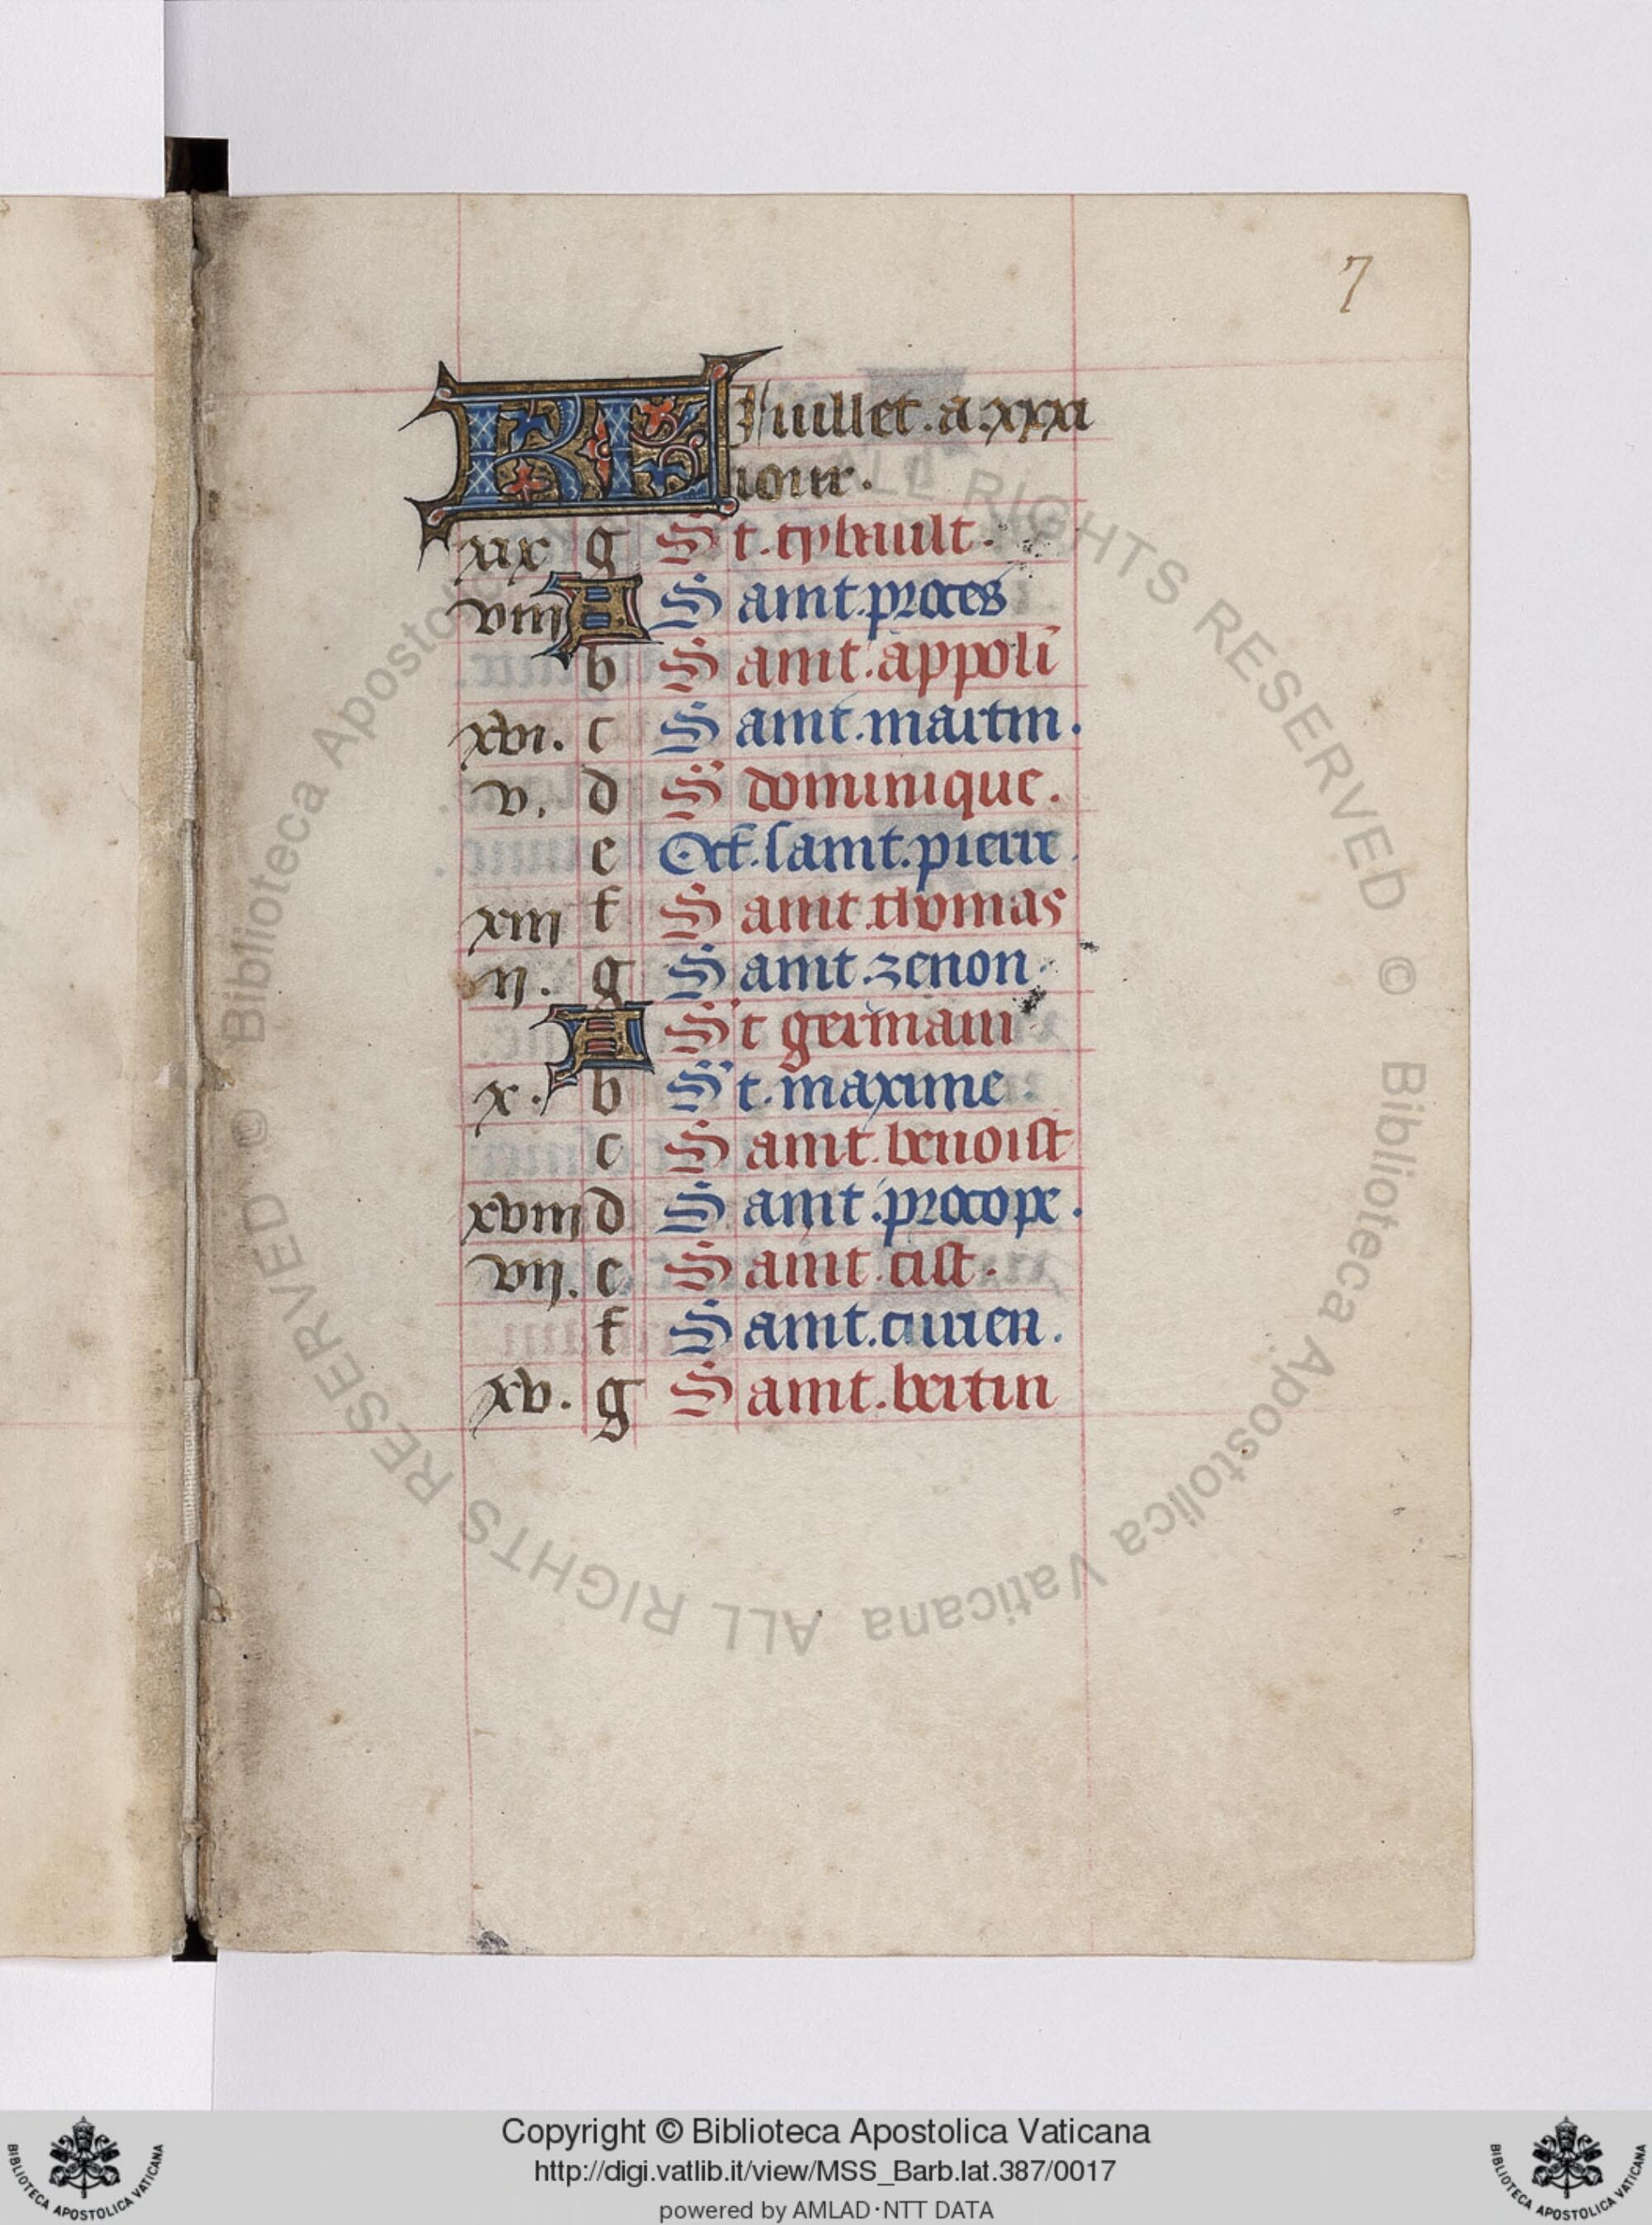 7
KL Juillet. a. xxxi
iour.
xix g St. tybault.
viii A Saint. proces
b Saint. appoli
xvi. c Saint. martin.
v. d S dominique.
e Oct. saint. pierre.
xiii f Saint. thomas
ii. g Saint. zenon.
A St germain
x. b St. maxime.
c Saint. benoist
xviii d Saint. procope.
vii. e Saint. cist.
f Saint. cirien.
xv. g Saint. bertin
© Biblioteca Apostolica Vaticana ALL RIGHTS RESERVED © Biblioteca Apostolica Vaticana ALL RIGHTS RESERVED
Copyright © Biblioteca Apostolica Vaticana
http://digi.vatlib.it/view/MSS_Barb.lat.387/0017
powered by AMLAD·NTT DATA
BIBLIOTECA APOSTOLICA VATICANA
BIBLIOTECA APOSTOLICA VATICANA